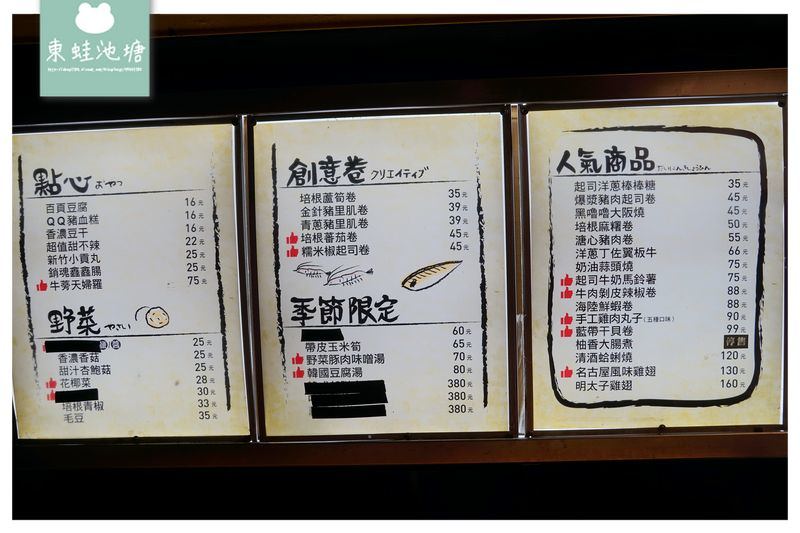 東蛙池塘
點心 おやつ
百頁豆腐 16元
QQ豬血糕 16元
香濃豆干 16元
超值甜不辣 22元
新竹小貢丸 25元
銷魂鑫鑫腸 25元
牛蒡天婦羅 75元
野菜 やさい
25元
香濃香菇 25元
甜汁杏鮑菇 25元
花椰菜 28元
30元
培根青椒 33元
毛豆 35元
創意卷 クリエイティブ
培根蘆筍卷 35元
金針豬里肌卷 39元
青蔥豬里肌卷 39元
培根蕃茄卷 45元
糯米椒起司卷 45元
季節限定
60元
帶皮玉米筍 65元
野菜豚肉味噌湯 70元
韓國豆腐湯 80元
380元
380元
380元
人氣商品
起司洋蔥棒棒糖 35元
爆漿豬肉起司卷 45元
黑嚕嚕大阪燒 45元
培根麻糬卷 50元
溏心豬肉卷 55元
洋蔥丁佐翼板牛 66元
奶油蒜頭燒 75元
起司牛奶馬鈴薯 75元
牛肉剝皮辣椒卷 88元
海陸鮮蝦卷 88元
手工雞肉丸子(五種口味) 90元
藍帶干貝卷 99元
柚香大腸煮 停售
清酒蛤蜊燒 120元
名古屋風味雞翅 130元
明太子雞翅 160元